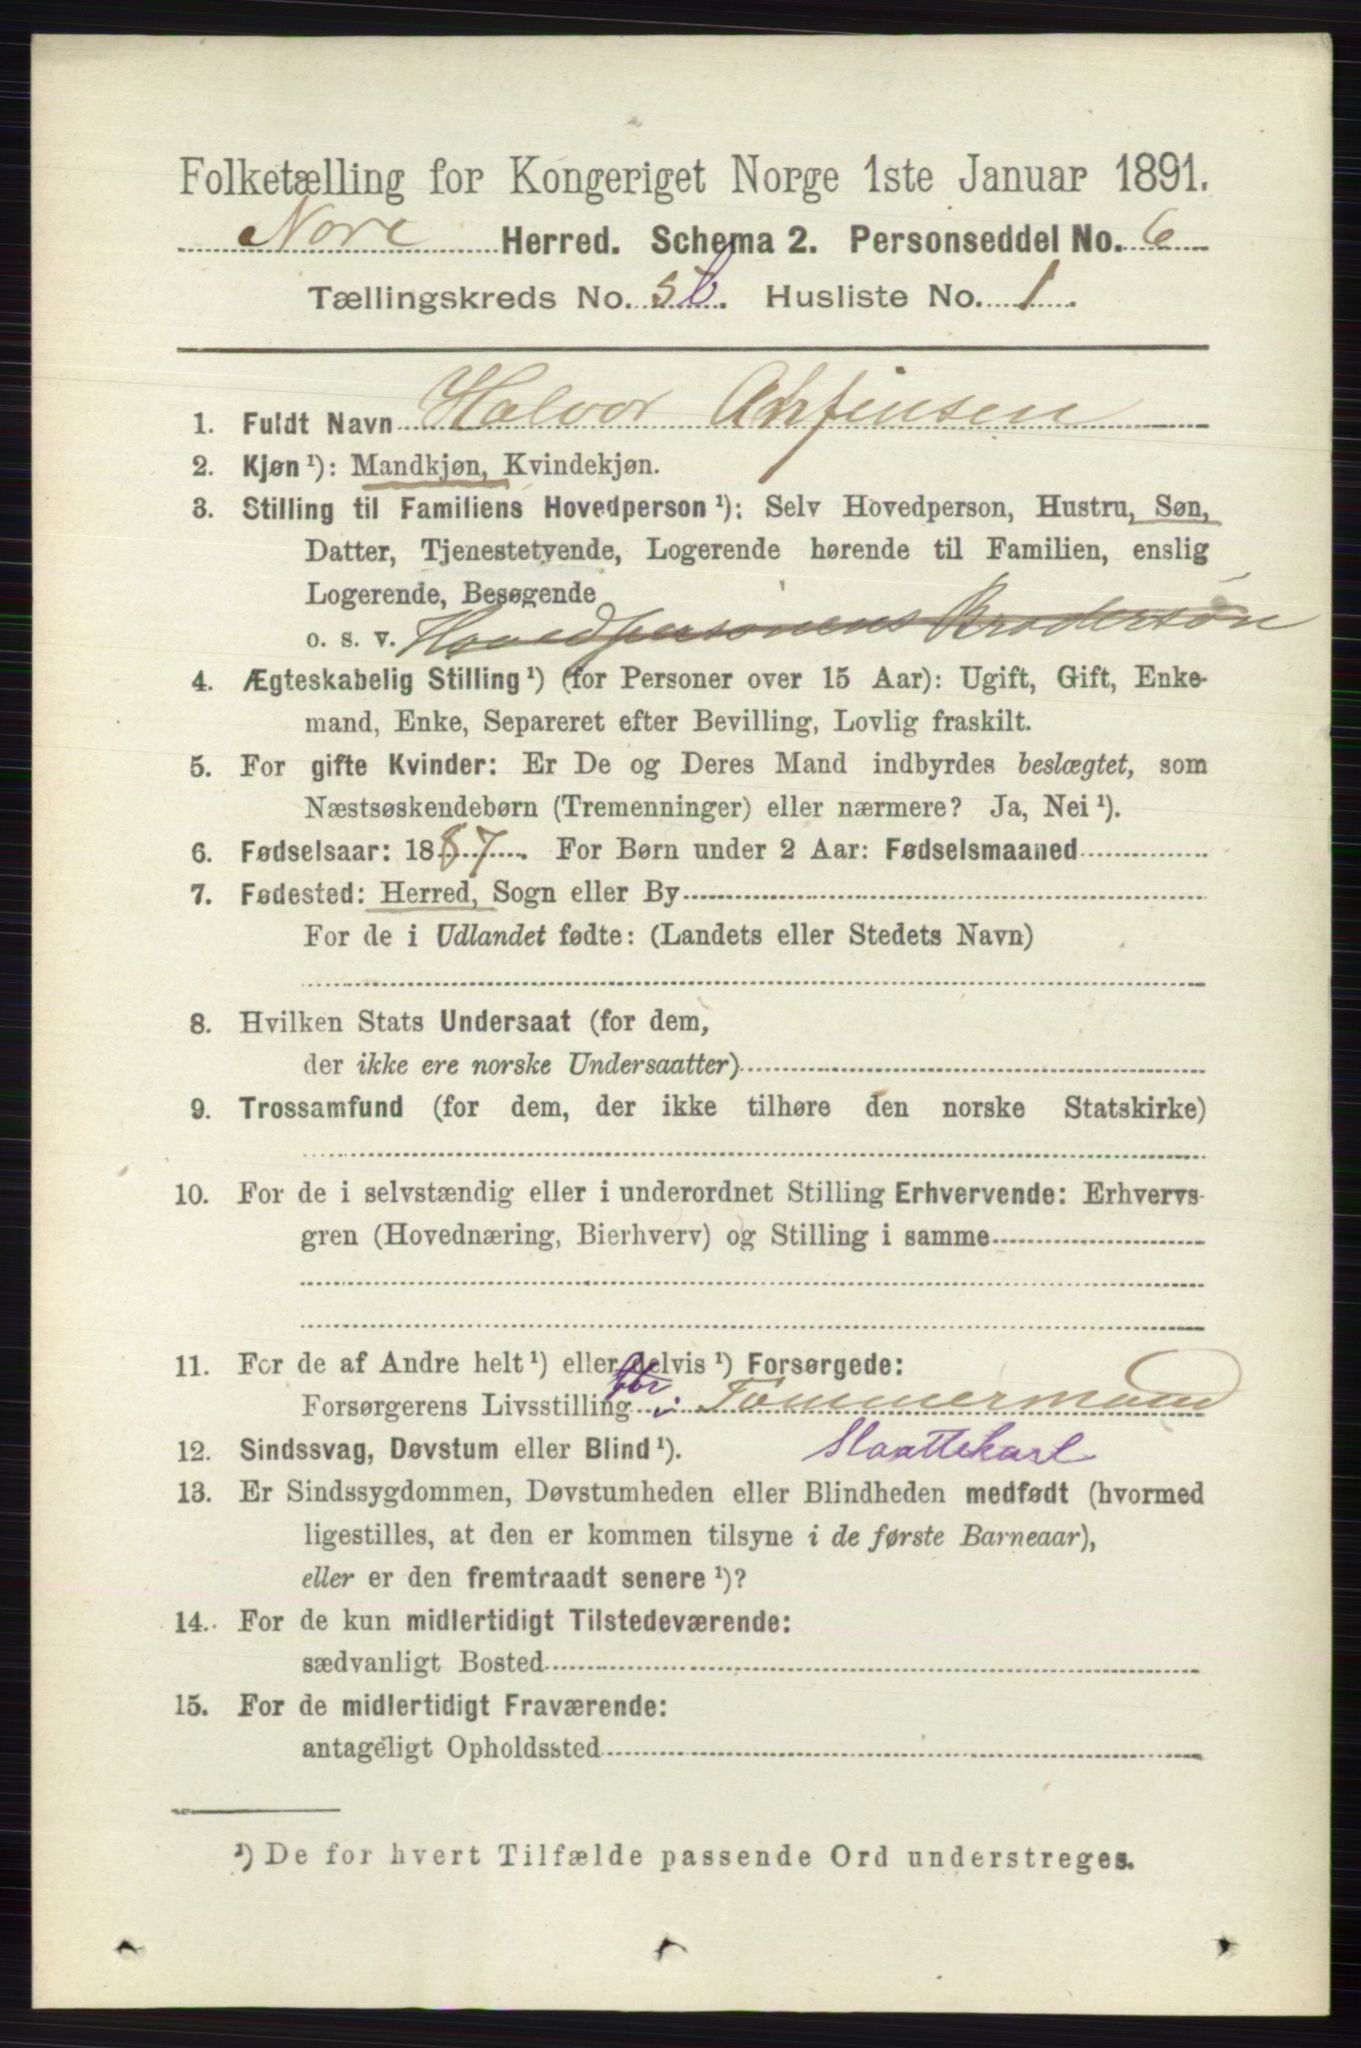 Folketælling for Kongeriget Norge 1ste Januar 1891.
Nore Herred. Schema 2. Personseddel No. 6
Tællingskreds No. 5b. Husliste No. 1.
1. Fuldt Navn Halvor Anfinsen
2. Kjøn ¹): Mandkjøn, Kvindekjøn.
3. Stilling til Familiens Hovedperson ¹): Selv Hovedperson, Hustru, Søn,
Datter, Tjenestetyende, Logerende hørende til Familien, enslig
Logerende, Besøgende
o. s. v. Hovedpersonens Brodersøn
4. Ægteskabelig Stilling ¹) (for Personer over 15 Aar): Ugift, Gift, Enke-
mand, Enke, Separeret efter Bevilling, Lovlig fraskilt.
5. For gifte Kvinder: Er De og Deres Mand indbyrdes beslægtet, som
Næstsøskendebørn (Tremenninger) eller nærmere? Ja, Nei ¹).
6. Fødselsaar: 1887. For Børn under 2 Aar: Fødselsmaaned
7. Fødested: Herred, Sogn eller By
For de i Udlandet fødte: (Landets eller Stedets Navn)
8. Hvilken Stats Undersaat (for dem,
der ikke ere norske Undersaatter)
9. Trossamfund (for dem, der ikke tilhøre den norske Statskirke)
10. For de i selvstændig eller i underordnet Stilling Erhvervende: Erhvervs-
gren (Hovednæring, Bierhverv) og Stilling i samme
11. For de af Andre helt ¹) eller delvis ¹) Forsørgede:
Forsørgerens Livsstilling Tømmermand
12. Sindssvag, Døvstum eller Blind ¹). Slaattekarl
13. Er Sindssygdommen, Døvstumheden eller Blindheden medfødt (hvormed
ligestilles, at den er kommen tilsyne i de første Barneaar),
eller er den fremtraadt senere ¹)?
14. For de kun midlertidigt Tilstedeværende:
sædvanligt Bosted
15. For de midlertidigt Fraværende:
antageligt Opholdssted
¹) De for hvert Tilfælde passende Ord understreges.